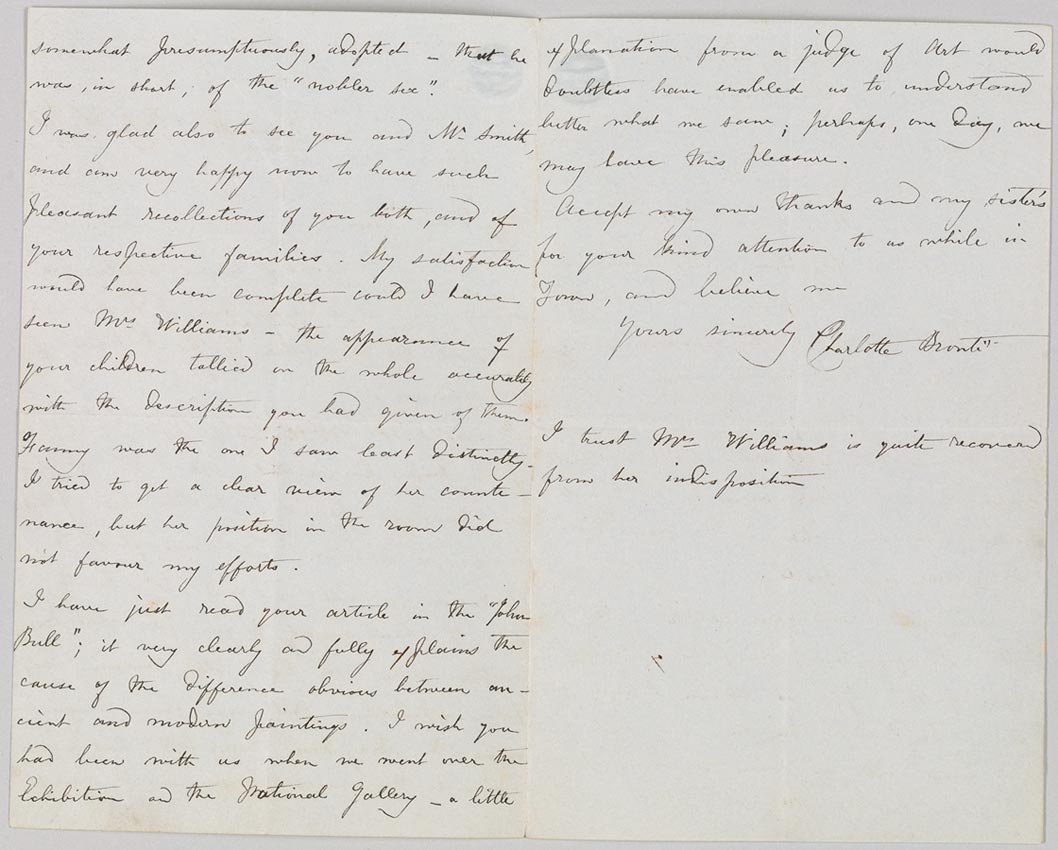 somewhat presumptuously, adopted - that he
was, in short, of the "nobler sex".
I was glad also to see you and Mr Smith,
and am very happy now to have such
pleasant recollections of you both, and of
your respective families. My satisfaction
would have been complete could I have
seen Mrs Williams - the appearance of
your children tallied on the whole accurately
with the description you had given of them.
Fanny was the one I saw least distinctly.
I tried to get a clear view of her counte-
nance, but her position in the room did
not favour my efforts.
I have just read your article in the "John
Bull"; it very clearly and fully explains the
cause of the difference obvious between an-
cient and modern paintings. I wish you
had been with us when we went over the
Exhibition and the National Gallery - a little
explanation from a judge of Art would
doubtless have enabled us to understand
better what we saw; perhaps, one day, we
may have this pleasure.
Accept my own thanks and my sister's
for your kind attention to us while in
Town, and believe me
Yours sincerely Charlotte Brontë
I trust Mrs Williams is quite recovered
from her indisposition